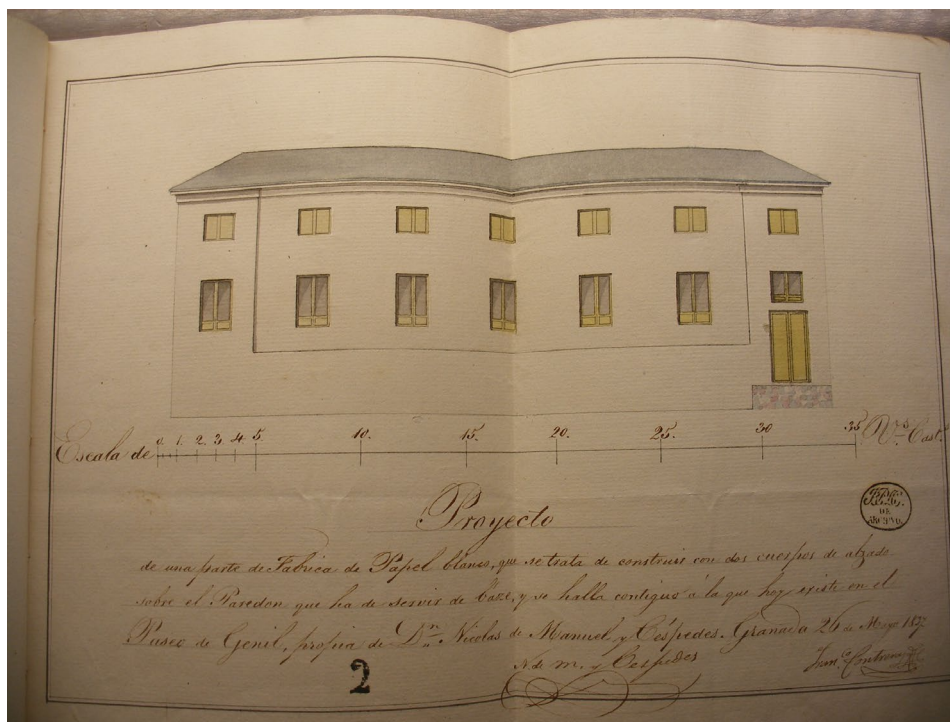 Escala de 0. 1. 2. 3. 4. 5. 10. 15. 20. 25. 30 35 V.s Cast.
Proyecto
DE
ARCHIVO.
de una parte de Fabrica de Papel blanco, que se trata de construir con dos cuerpos de alzado
sobre el Paredon que ha de servir de Báze, y se halla contiguo á la que hoy existe en el
Paseo de Genil, propia de D.n Nicolas de Manuel y Céspedes. Granada 26 de Mayo
N. de M. y Cespedes
Contreras
2